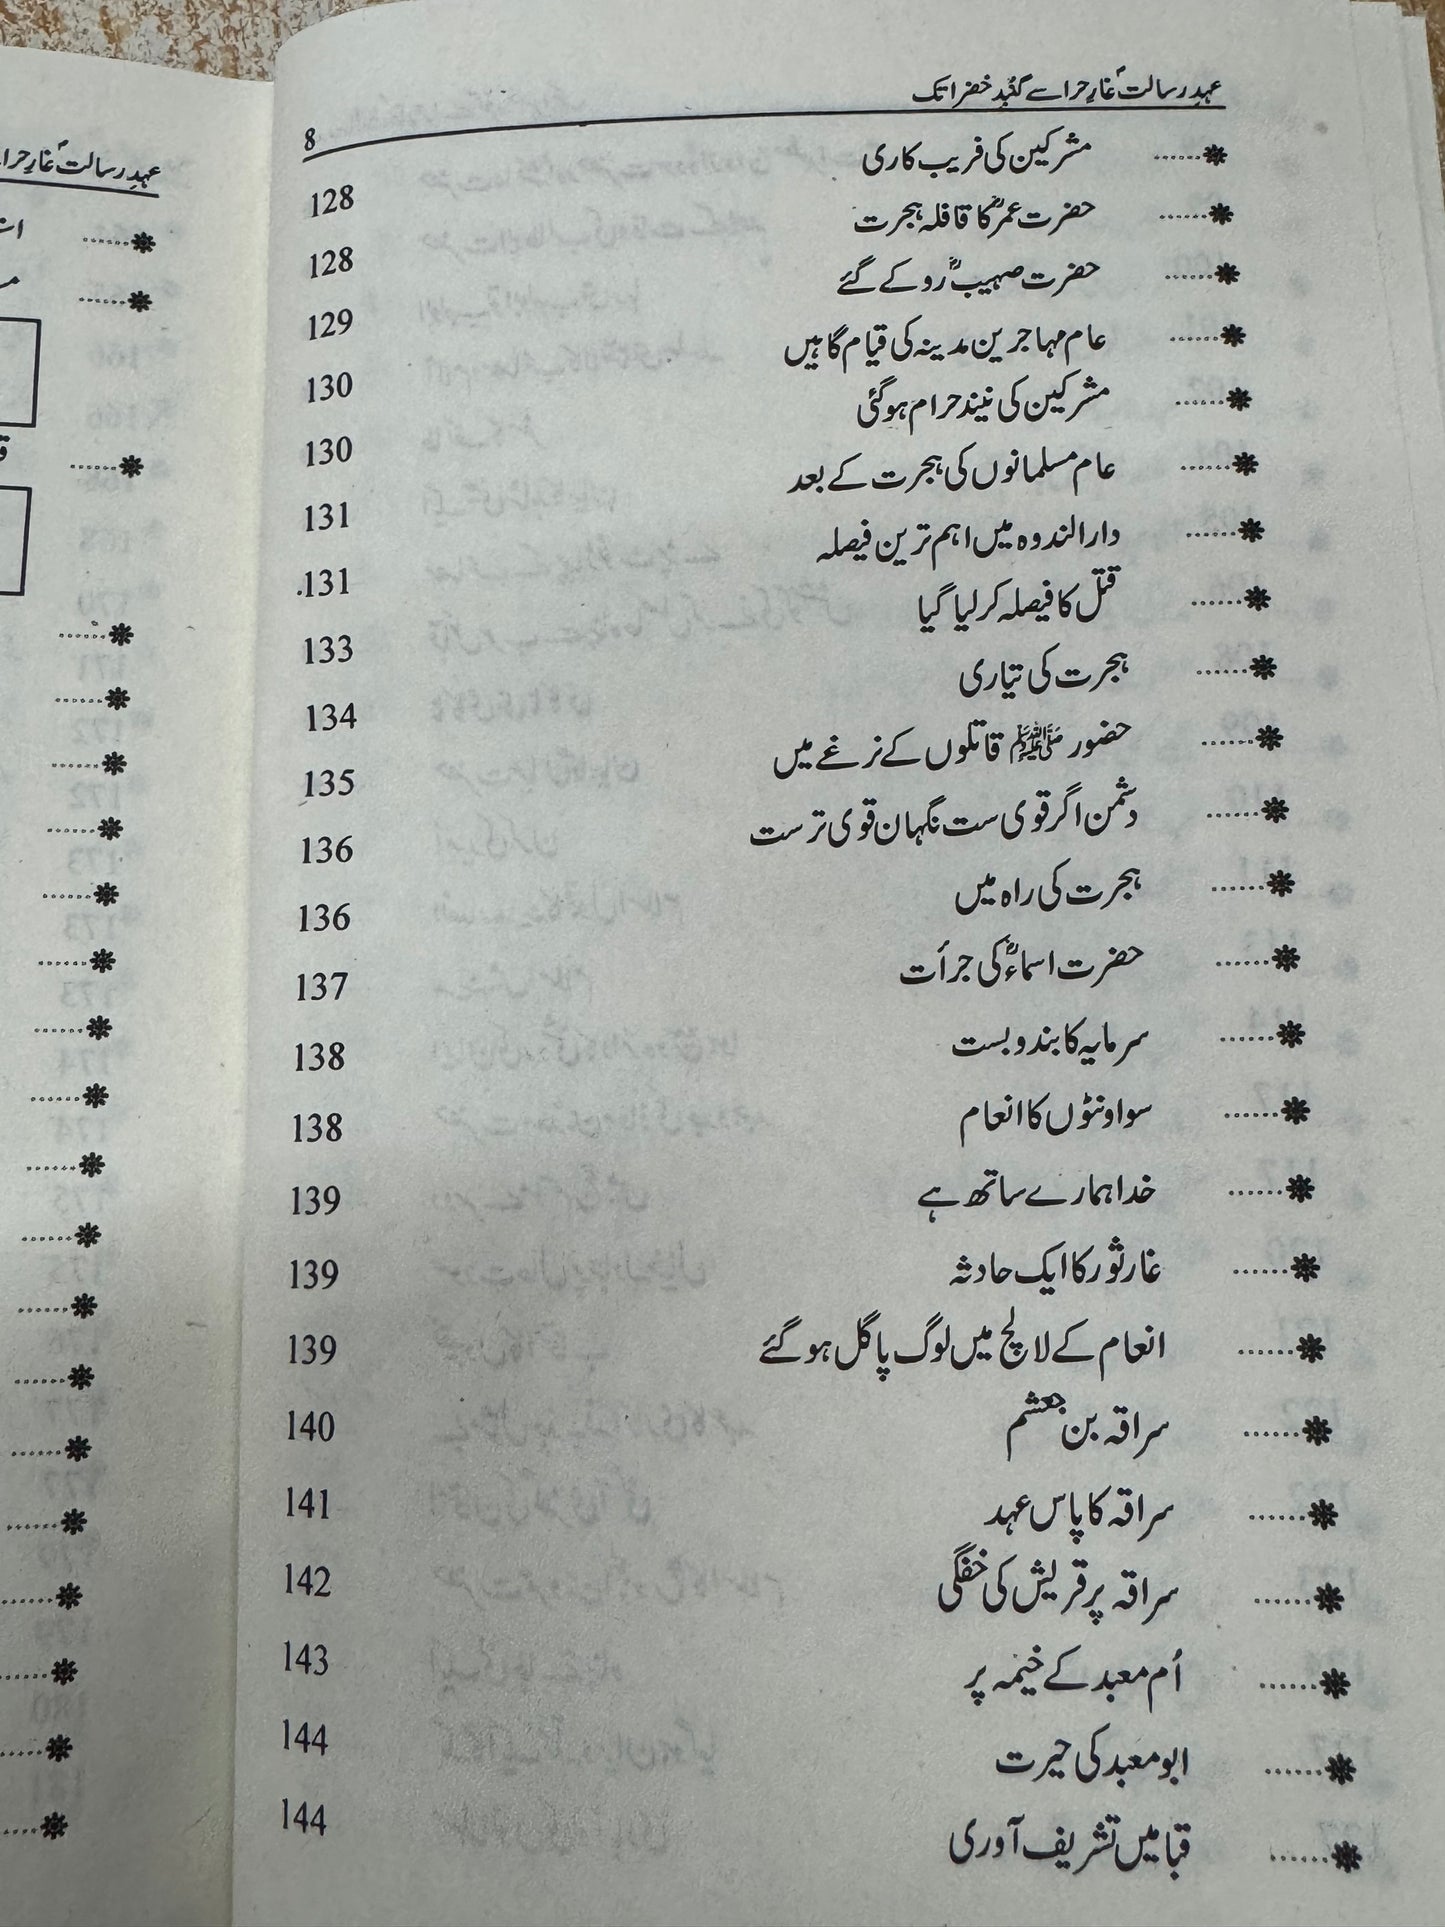 عہدِ رسالتؐ غارِ حرا سے گنبدِ خضرا تک
8
❋...... مشرکین کی فریب کاری 128
❋...... حضرت عمرؓ کا قافلہ ہجرت 128
❋...... حضرت صہیبؓ روکے گئے 129
❋...... عام مہاجرین مدینہ کی قیام گاہیں 130
❋...... مشرکین کی نیند حرام ہوگئی 130
❋...... عام مسلمانوں کی ہجرت کے بعد 131
❋...... دارالندوہ میں اہم ترین فیصلہ 131
❋...... قتل کا فیصلہ کر لیا گیا 133
❋...... ہجرت کی تیاری 134
❋...... حضور ﷺ قاتلوں کے نرغے میں 135
❋...... دشمن اگر قوی ست نگہبان قوی تر ست 136
❋...... ہجرت کی راہ میں 136
❋...... حضرت اسماءؓ کی جرأت 137
❋...... سرمایہ کا بندوبست 138
❋...... سو اونٹوں کا انعام 138
❋...... خدا ہمارے ساتھ ہے 139
❋...... غار ثور کا ایک حادثہ 139
❋...... انعام کے لالچ میں لوگ پاگل ہو گئے 139
❋...... سراقہ بن جعشم 140
❋...... سراقہ کا پاس عہد 141
❋...... سراقہ پر قریش کی خفگی 142
❋...... اُم معبد کے خیمہ پر 143
❋...... ابو معبد کی حیرت 144
❋...... قبا میں تشریف آوری 144
عہدِ رسالتؐ غارِ حرا